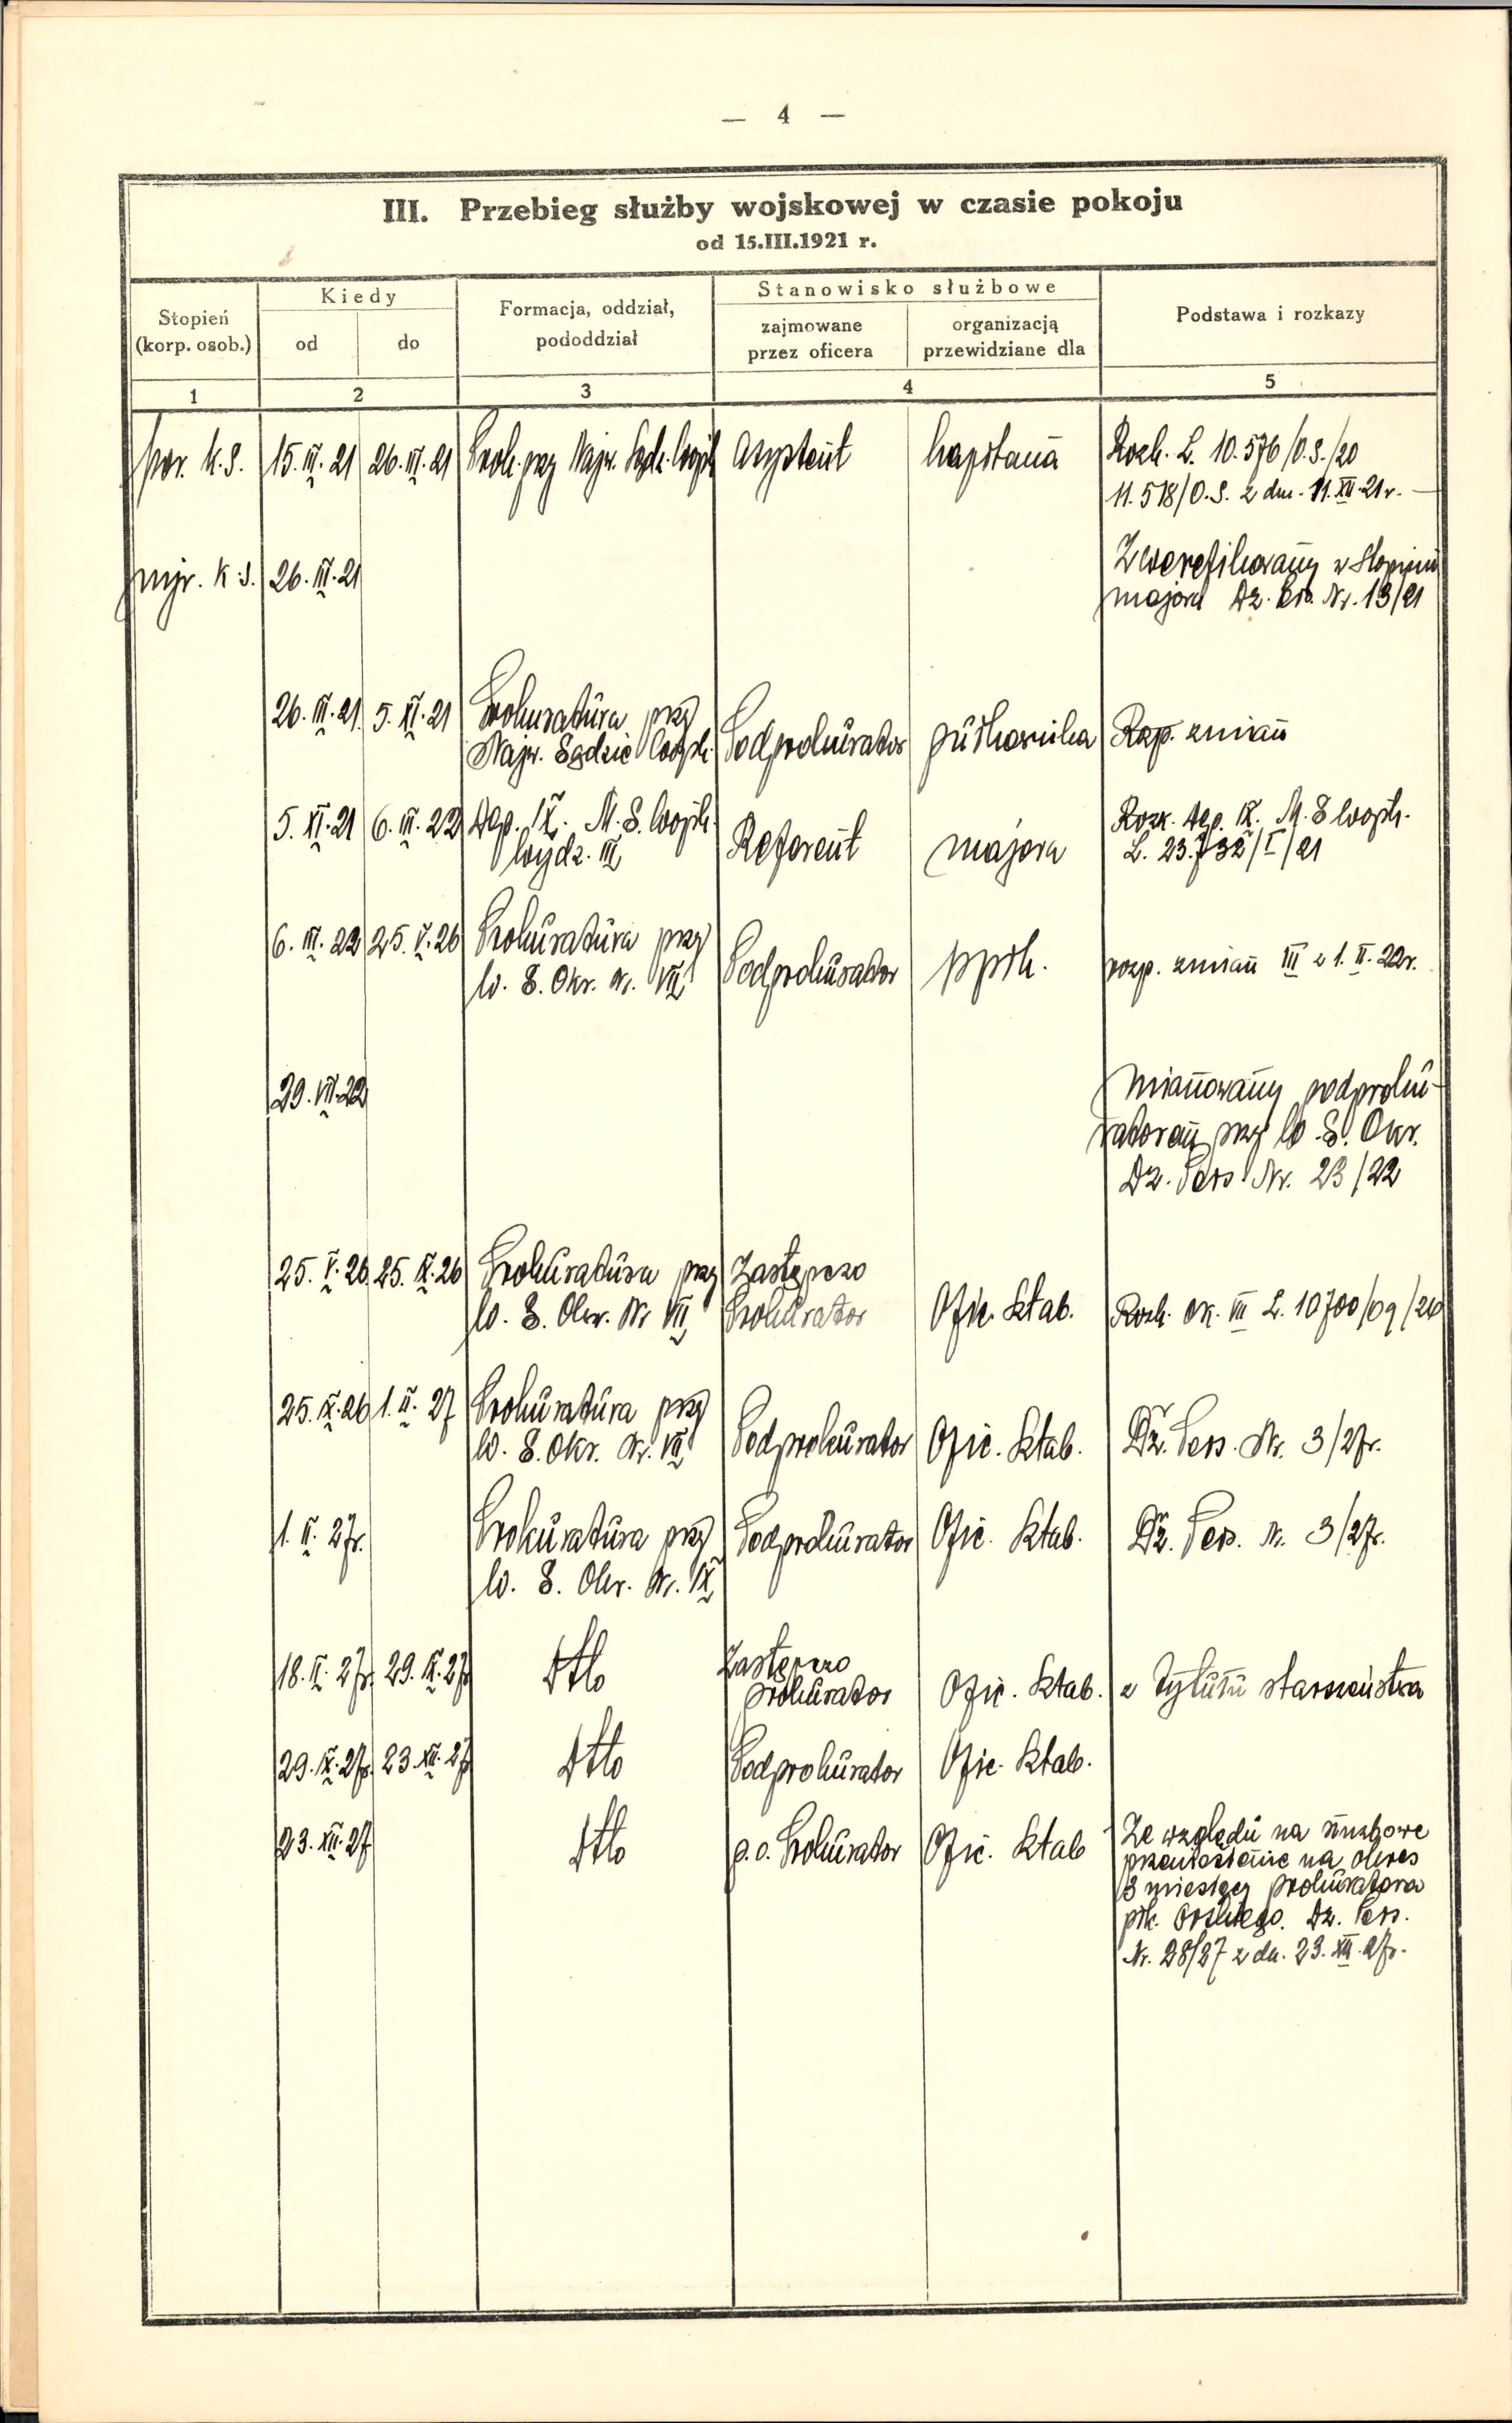 — 4 —
III. Przebieg służby wojskowej w czasie pokoju
od 15.III.1921 r.
Stopień
(korp. osob.)
Kiedy
od
do
Formacja, oddział,
pododdział
Stanowisko służbowe
zajmowane
przez oficera
organizacją
przewidziane dla
Podstawa i rozkazy
1
2
3
4
5
por. k.s. 15.III.21 26.III.21 Prok. przy Najw. Sądz. Wojsk. Asystent kapitana Rozk. L. 10.576/O.S./20
11.518/O.S. z dn. 11.XII.21r. —
mjr. k.s. 26.III.21 Zweryfikowany w stopniu
majora Dz. Pers. Nr. 13/21
26.III.21. 5.XI.21 Prokuratura przy
Najw. Sądzie Wojsk. Podprokurator pułkownika Rozp. zmian
5.XI.21 6.III.22 Dep. IX. M.S.Wojsk.
Wydz. III Referent majora Rozk. Dep. IX. M.S.Wojsk.
L. 23.732/I/21
6.III.22 25.V.26 Prokuratura przy
W. S. Okr. Nr. VII Podprokurator ppłk. rozp. zmian III z 1.II.22r.
29.VII.22 Mianowany podproku-
ratorem przy W. S. Okr.
Dz. Pers. Nr. 23/22
25.V.26. 25.IX.26 Prokuratura przy
W. S. Okr. Nr VII Zastępczo
Prokurator Ofic. Sztab. Rozk. OK. VII L. 10700/og/26
25.IX.26 1.II.27 Prokuratura przy
W. S. Okr. Nr. VII Podprokurator Ofic. Sztab. Dz. Pers. Nr. 3/27r.
1.II.27r. Prokuratura przy
W. S. Okr. Nr. IX Podprokurator Ofic. Sztab. Dz. Pers. Nr. 3/27r.
18.II.27r. 29.IX.27r Dtto Zastępczo
prokurator Ofic. Sztab. z tytułu starszeństwa
29.IX.27r. 23.XII.27r Dtto Podprokurator Ofic. Sztab.
23.XII.27 Dtto p.o. Prokurator Ofic. Sztab Ze względu na służbowe
przeniesienie na okres
3 miesięcy prokuratora
płk. Dz. Pers.
Nr. 28/27 z dn. 23.XII.27r.